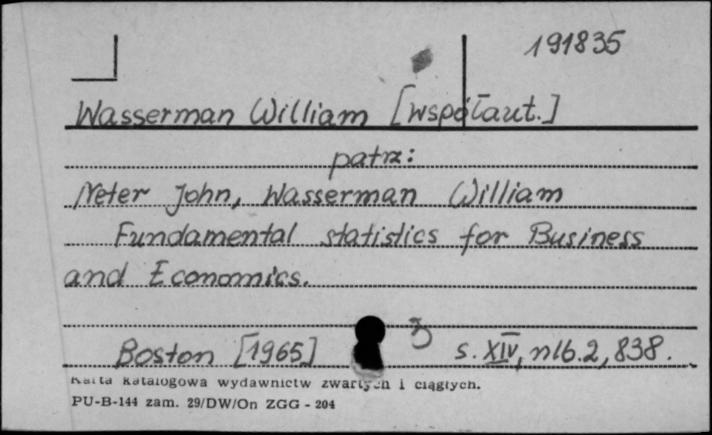 191835
Wasserman William [współaut.]
patrz:
Neter John, Wasserman William
Fundamental statistics for Business
and Economics.
Boston [1965] s. XIV, nlb. 2, 838.
Karta katalogowa wydawnictw zwartych i ciągłych.
PU-B-144 zam. 29/DW/On ZGG - 204